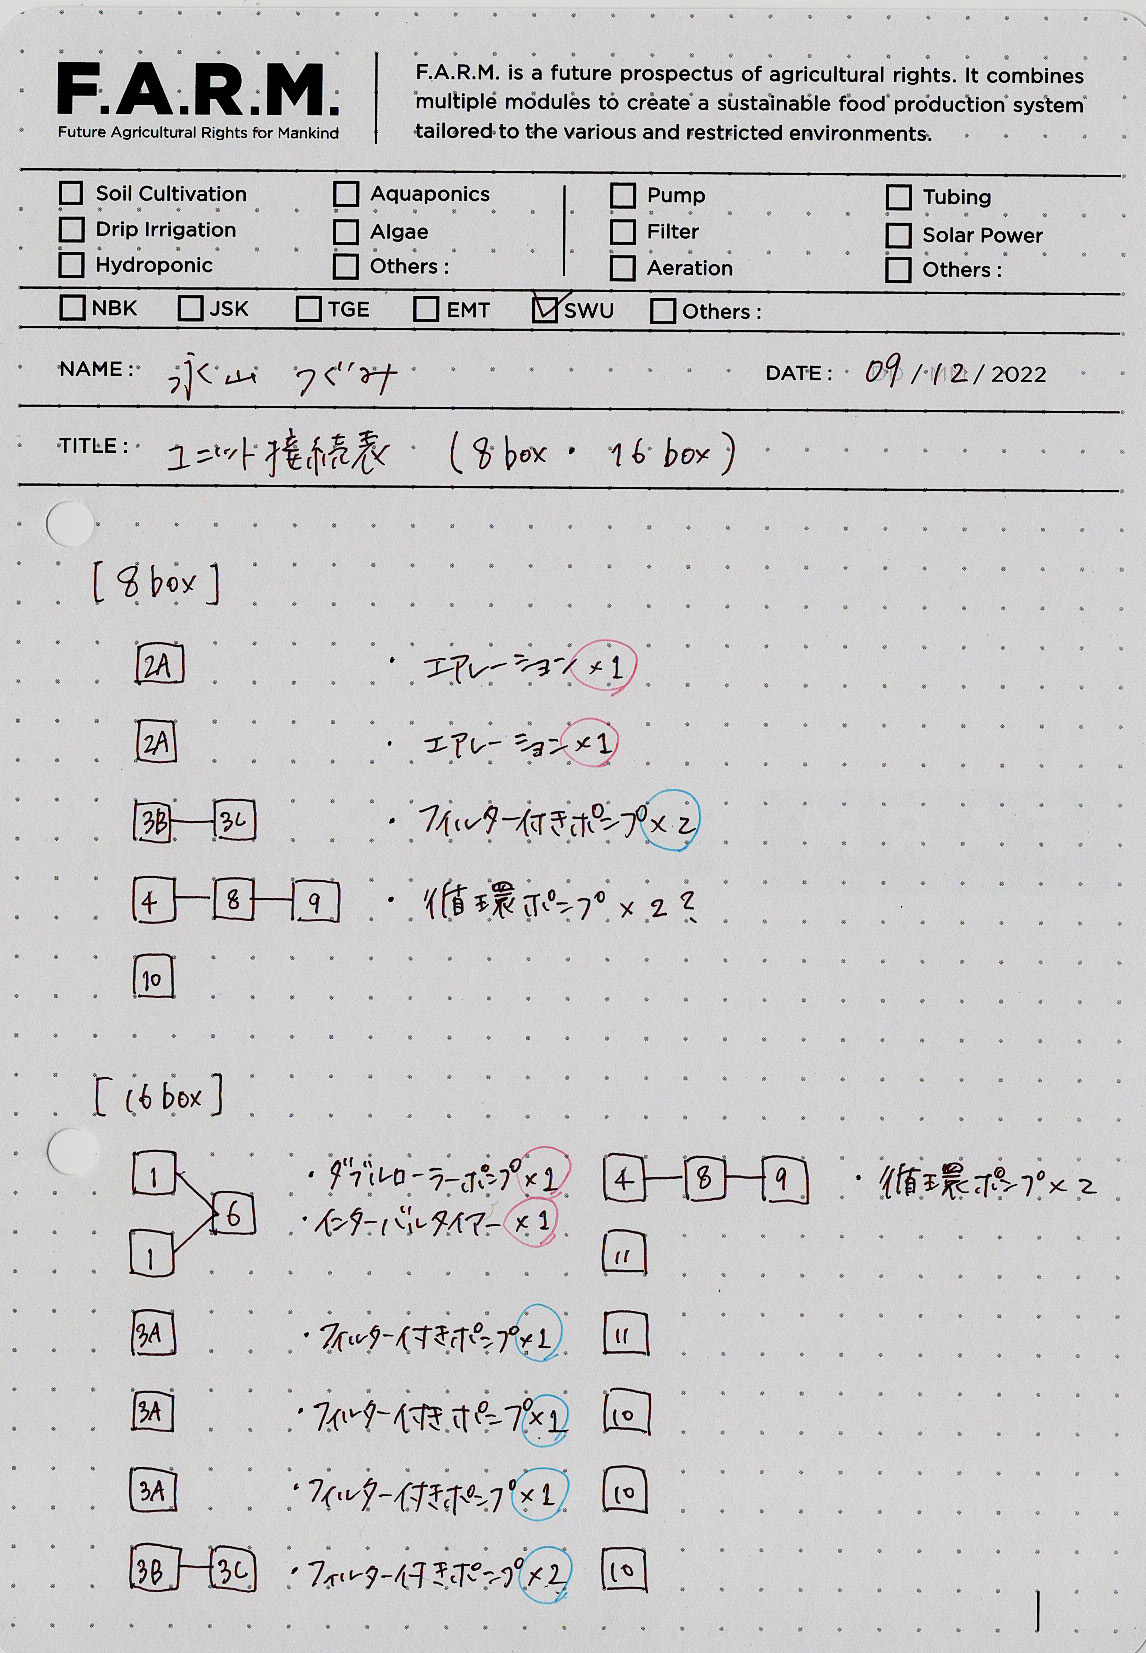 F.A.R.M.
Future Agricultural Rights for Mankind
F.A.R.M. is a future prospectus of agricultural rights. It combines
multiple modules to create a sustainable food production system
tailored to the various and restricted environments.
Soil Cultivation Aquaponics Pump Tubing
Drip Irrigation Algae Filter Solar Power
Hydroponic Others : Aeration Others :
NBK JSK TGE EMT SWU Others :
NAME : 永山 つぐみ DATE : 09 / 12 / 2022
TITLE : ユニット接続表 (8box・16box)
[8box]
2A ・エアレーション×1
2A ・エアレーション×1
3B 3C ・フィルター付きポンプ×2
4 8 9 ・循環ポンプ×2?
10
[16box]
1 ・ダブルローラーポンプ×1
6 ・インターバルタイマー×1
1
3A ・フィルター付きポンプ×1
3A ・フィルター付きポンプ×1
3A ・フィルター付きポンプ×1
3B 3C ・フィルター付きポンプ×2
4 8 9 ・循環ポンプ×2
11
11
10
10
10
1